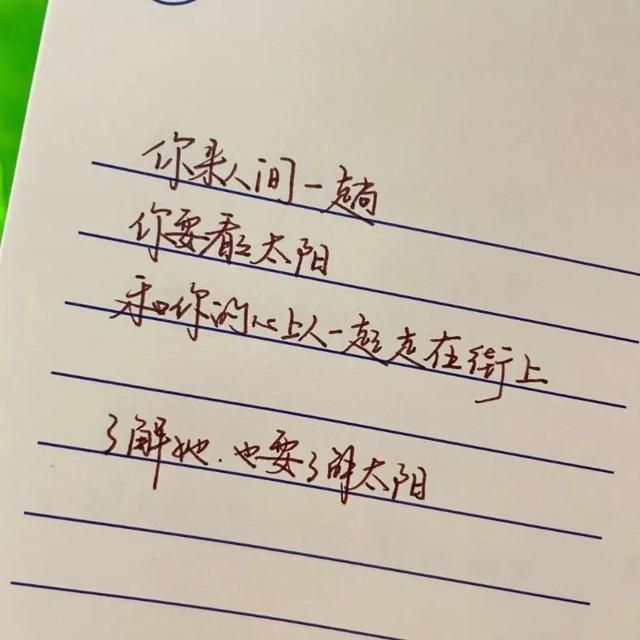 你来人间一趟
你要看看太阳
和你的心上人一起走在街上
了解她.也要了解太阳